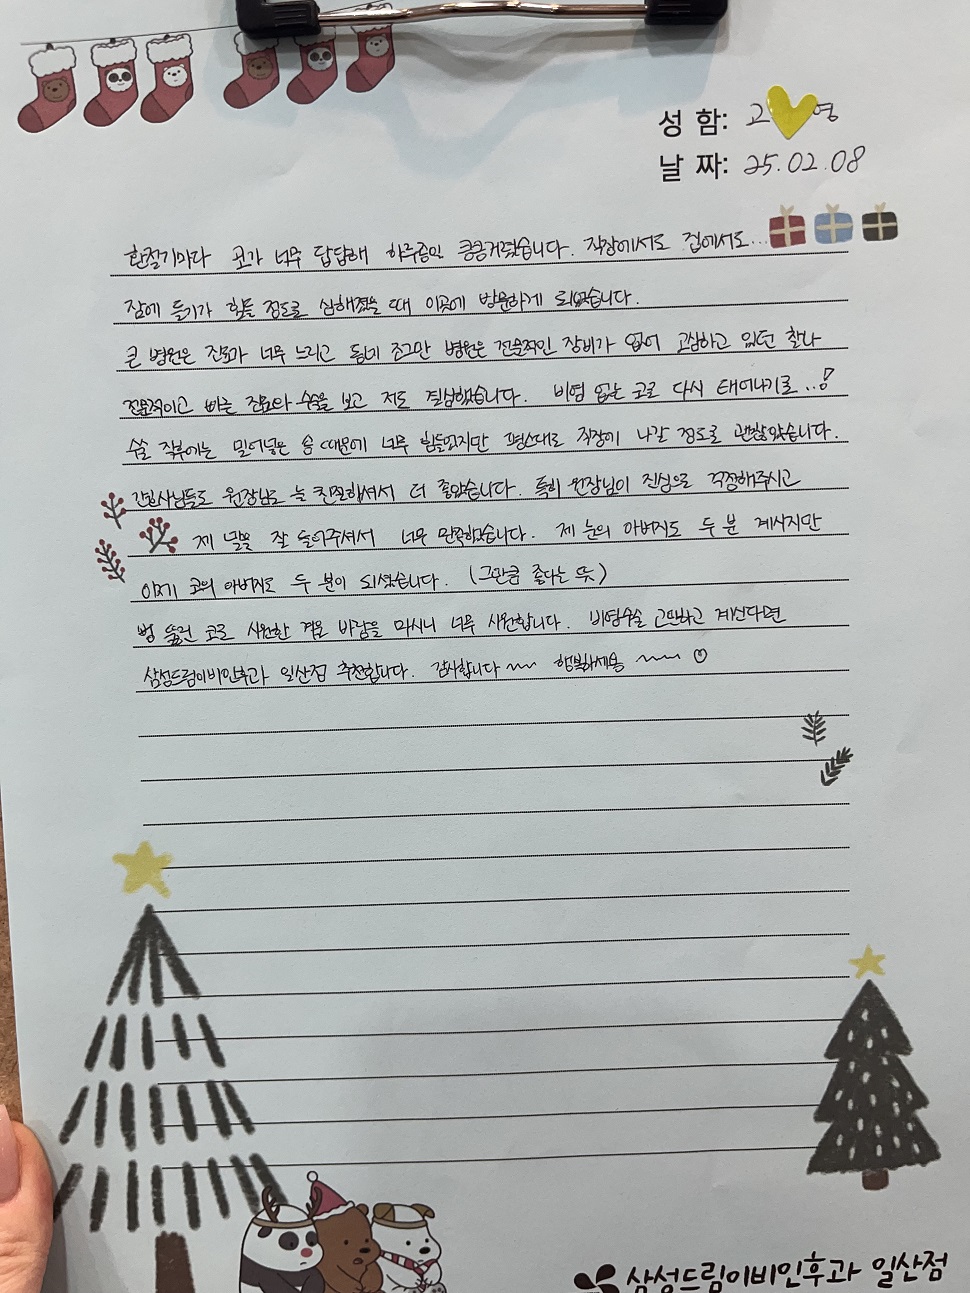 성 함: 고 영
날 짜: 25.02.08
환절기마다 코가 너무 답답해 하루종일 킁킁거렸습니다. 직장에서도 집에서도...
잠에 들기가 힘들 정도로 심해졌을 때 이곳에 방문하게 되었습니다.
큰 병원은 진료가 너무 느리고 동네 조그만 병원은 전문적인 장비가 없어 고심하고 있던 찰나
전문적이고 빠른 진료와 수술을 보고 저도 결심했습니다. 비염 없는 코로 다시 태어나기로..!
수술 직후에는 밀어넣은 솜 때문에 너무 힘들었지만 평소대로 직장에 나갈 정도로 괜찮았습니다.
간호사님들도 원장님도 늘 친절하셔서 더 좋았습니다. 특히 원장님이 진심으로 걱정해주시고
제 말을 잘 들어주셔서 너무 만족했습니다. 제 눈의 아버지도 두 분 계시지만
이제 코의 아버지도 두 분이 되셨습니다. (그만큼 좋다는 뜻)
뻥 뚫린 코로 시원한 겨울 바람을 마시니 너무 시원합니다. 비염수술 고민하고 계신다면
삼성드림이비인후과 일산점 추천합니다. 감사합니다 ~~ 행복하세용 ~~
삼성드림이비인후과 일산점